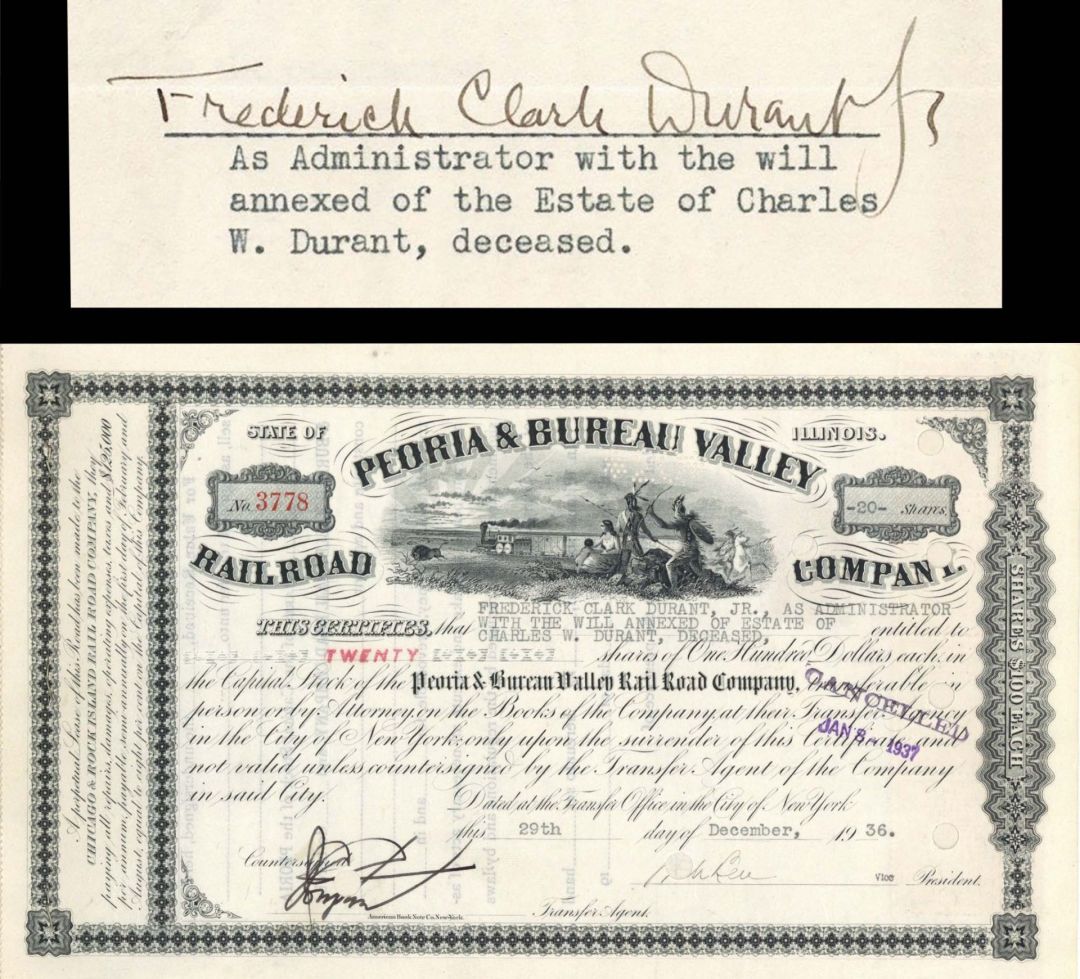 Frederick Clark Durant Jr
As Administrator with the will
annexed of the Estate of Charles
W. Durant, deceased.
A perpetual Lease of this Road has been made to the
CHICAGO & ROCK ISLAND RAIL ROAD COMPANY, they
paying all repairs, damages, operating expenses, taxes and $125,000
per annum, payable semi-annually on the first day of February and
August, equal to eight per cent on the Capital of this Company.
STATE OF ILLINOIS.
PEORIA & BUREAU VALLEY
No. 3778
-20- Shares.
RAILROAD COMPANY.
FREDERICK CLARK DURANT, JR., AS ADMINISTRATOR
THIS CERTIFIES, that WITH THE WILL ANNEXED OF ESTATE OF
CHARLES W. DURANT, DECEASED, entitled to
TWENTY shares of One Hundred Dollars each, in
the Capital Stock of the Peoria & Bureau Valley Rail Road Company, transferable in
person or by Attorney, on the Books of the Company, at their Transfer Agency
in the City of New York, only upon the surrender of this Certificate, and
not valid unless countersigned by the Transfer Agent of the Company
in said City.
CANCELLED
JAN 8 - 1937
Dated at the Transfer Office in the City of New York
this 29th day of December, 1936.
Countersigned
Vice President.
Transfer Agent.
American Bank Note Co. New York.
SHARES $100 EACH